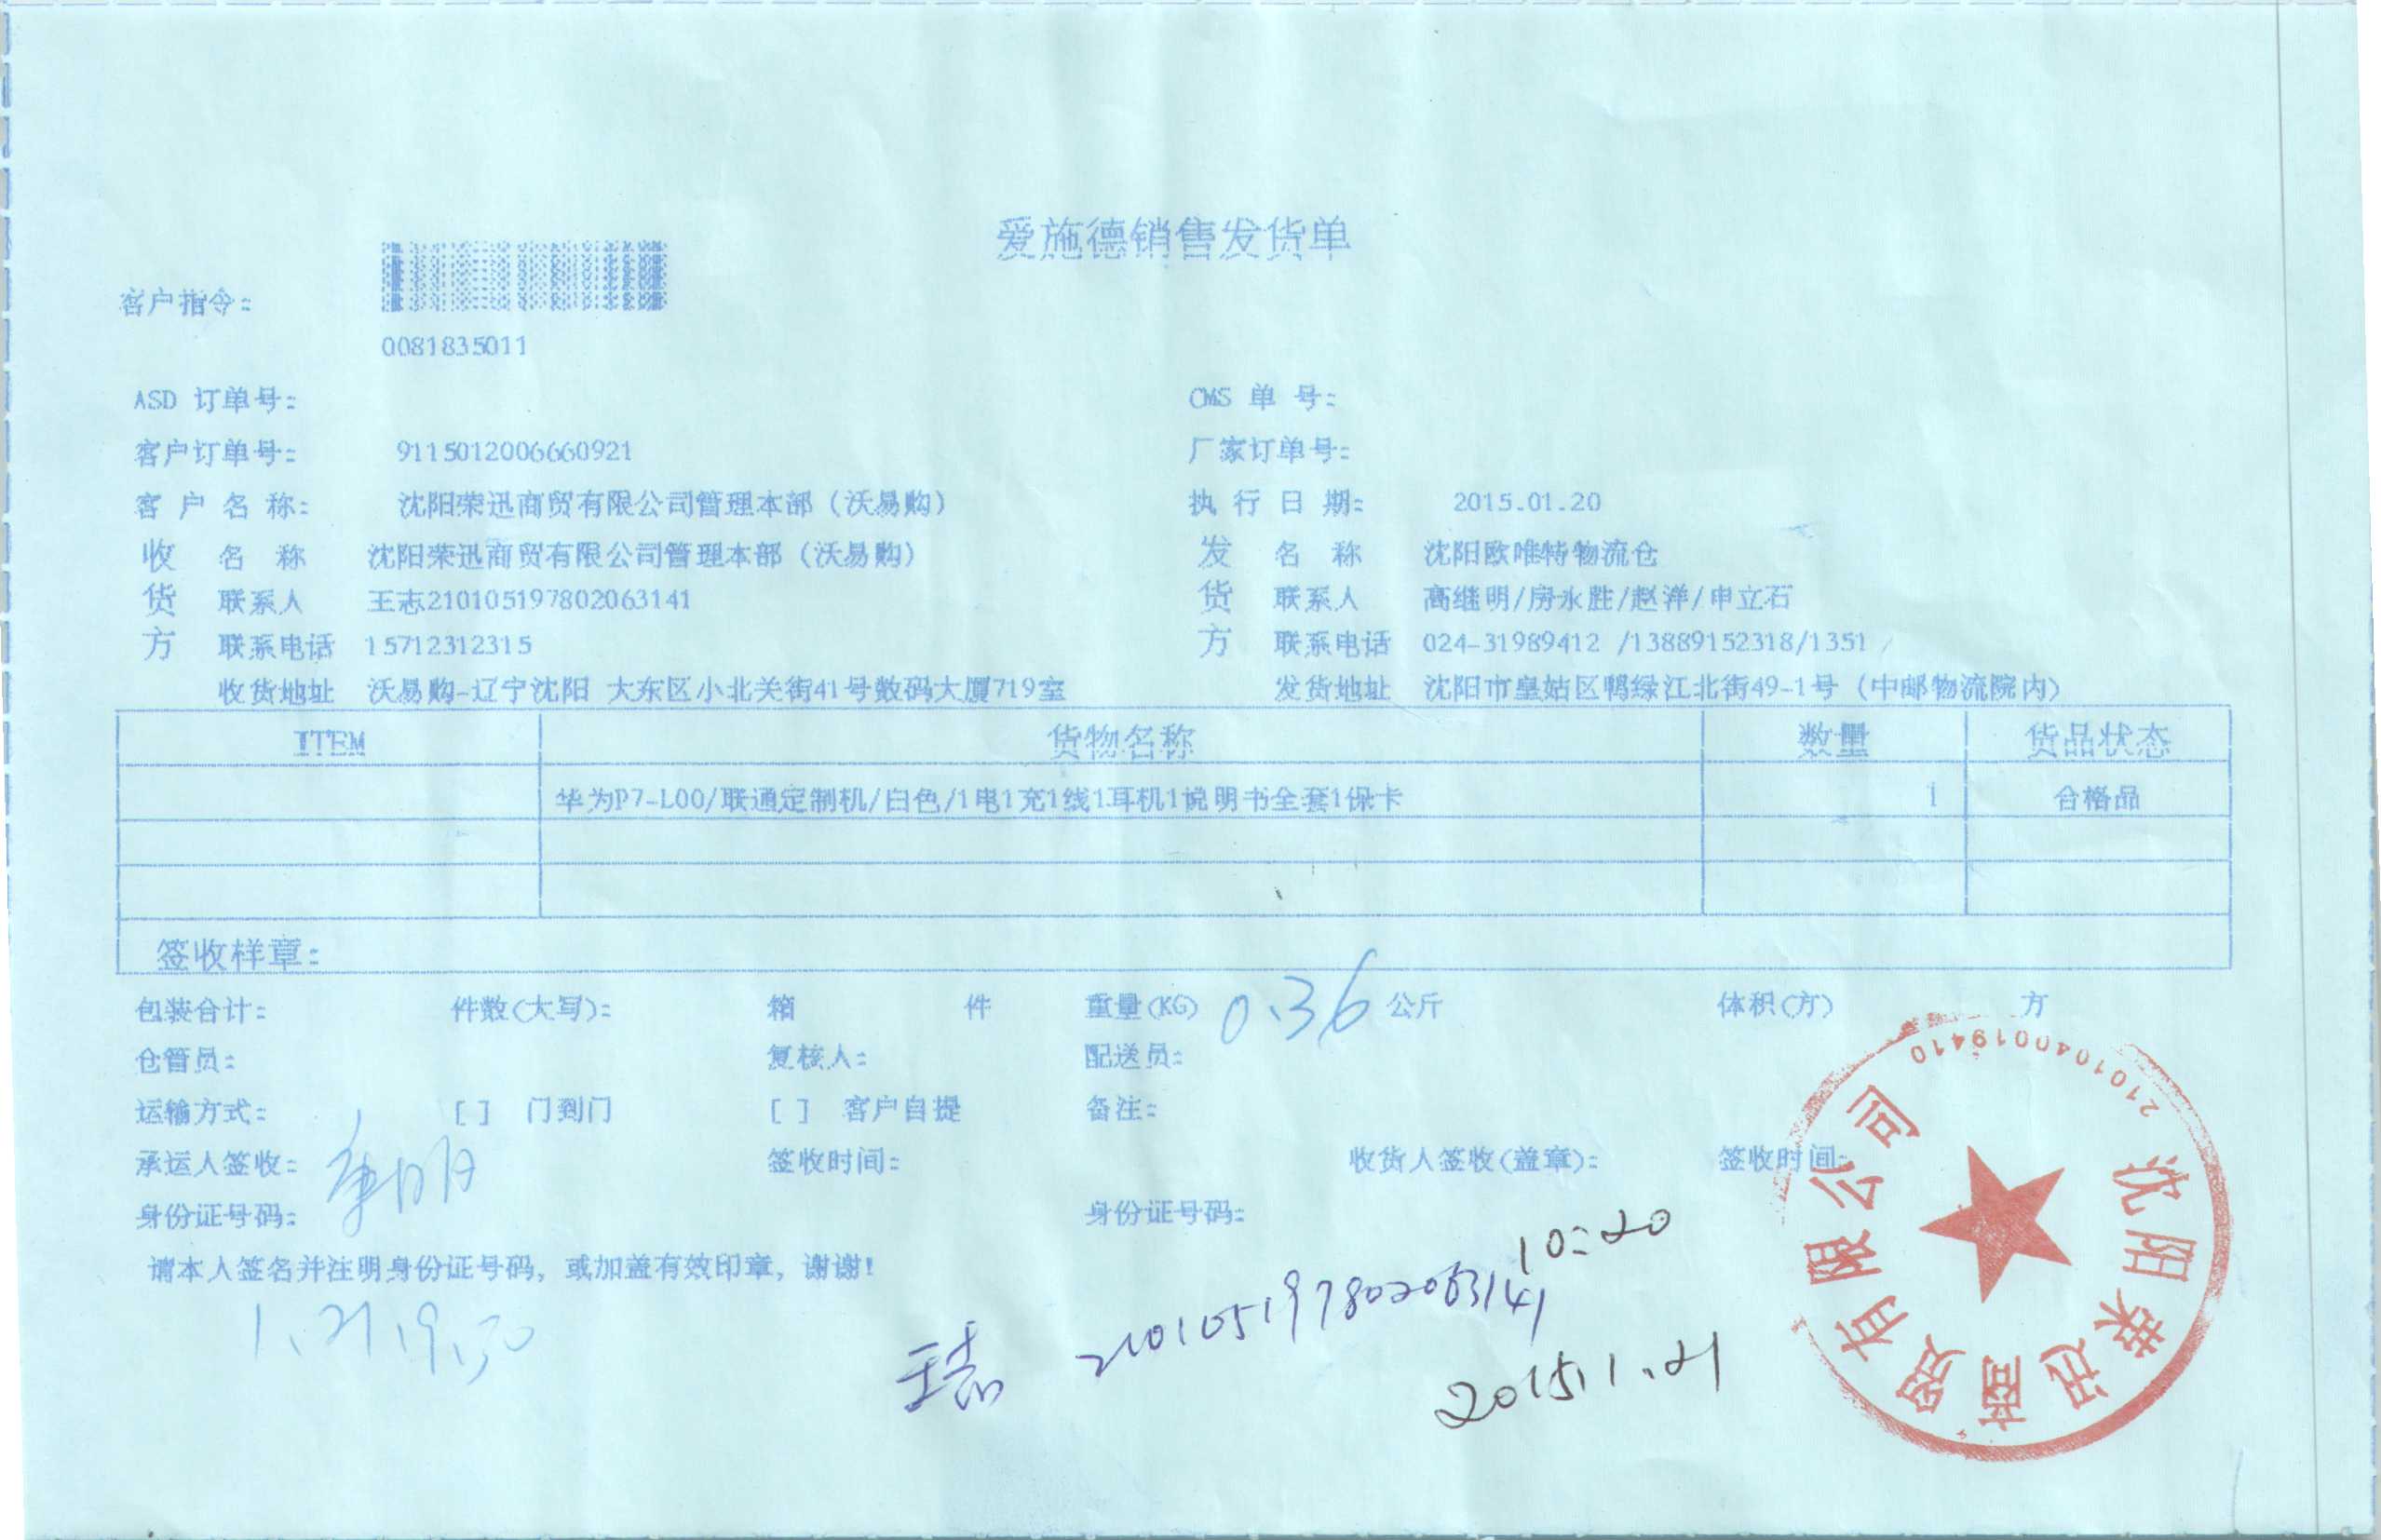 爱施德销售发货单
客户指令:
0081835011
ASD 订单号: CMS 单 号:
客户订单号: 9115012006660921 厂家订单号:
客 户 名 称: 沈阳荣迅商贸有限公司管理本部（沃易购） 执 行 日 期: 2015.01.20
收 名 称 沈阳荣迅商贸有限公司管理本部（沃易购） 发 名 称 沈阳欧唯特物流仓
货 联系人 王志210105197802063141 货 联系人 高继明/房永胜/赵洋/申立石
方 联系电话 15712312315 方 联系电话 024-31989412 /13889152318/1351 /
收货地址 沃易购-辽宁沈阳 大东区小北关街41号数码大厦719室 发货地址 沈阳市皇姑区鸭绿江北街49-1号（中邮物流院内）
ITEM 货物名称 数量 货品状态
华为P7-L00/联通定制机/白色/1电1充1线1耳机1说明书全套1保卡 1 合格品
签收样章:
包装合计: 件数(大写): 箱 件 重量(KG) 0.36 公斤 体积(方) 方
仓管员: 复核人: 配送员:
运输方式: [ ] 门到门 [ ] 客户自提 备注:
承运人签收: 签收时间: 收货人签收(盖章): 签收时间:
身份证号码: 身份证号码:
请本人签名并注明身份证号码，或加盖有效印章，谢谢!
10:20
王志 210105197802063141
2015.1.21
1.21 19:30
沈阳荣迅商贸有限公司
2101040019410